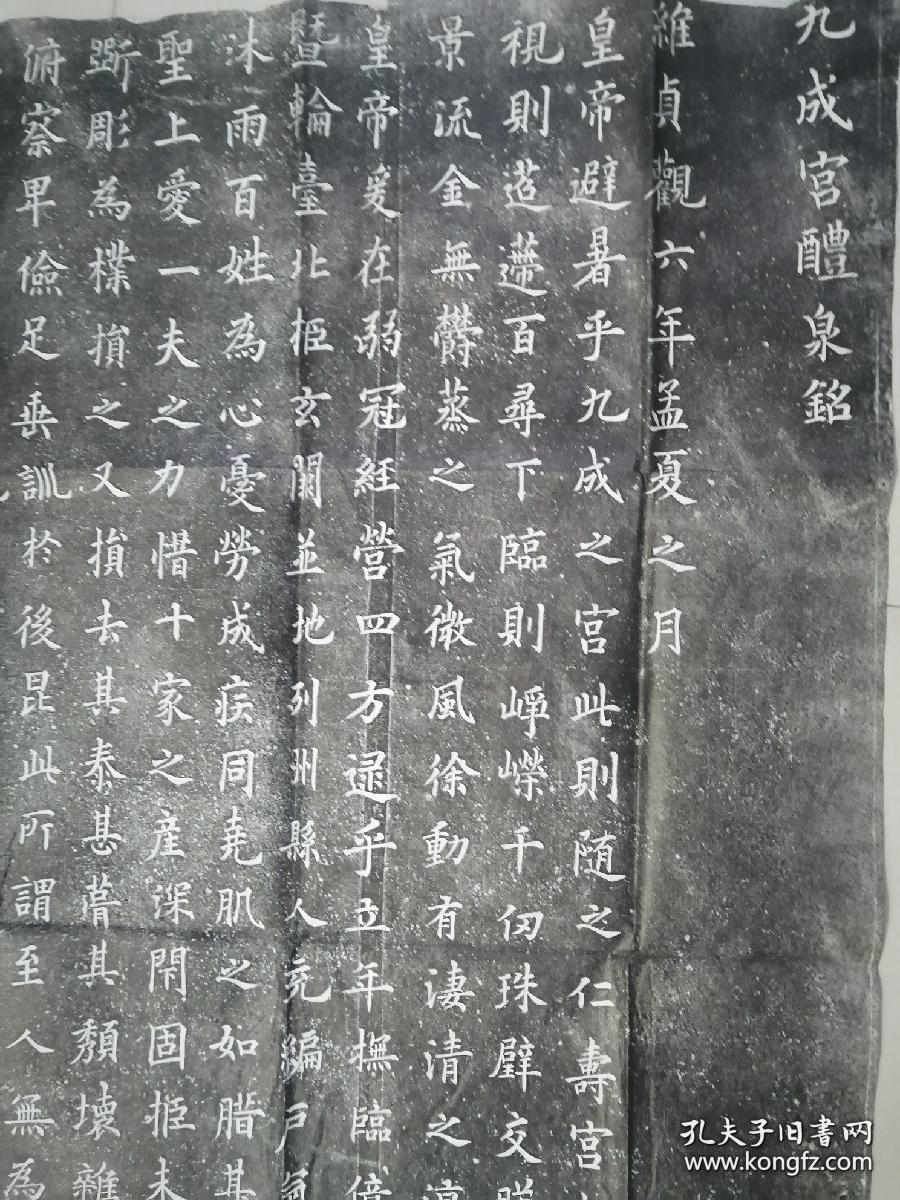 九成宮醴泉銘
維貞觀六年孟夏之月
皇帝避暑乎九成之宮此則随之仁壽宮
視則迢遰百尋下臨則崢嶸千仞珠璧交暎
景流金無欝蒸之氣微風徐動有淒清之涼
皇帝爰在弱冠經營四方逯乎立年撫臨億
暨輪臺北拒玄闕並地列州縣人充編戶氣
沐雨百姓為心憂勞成疾同堯肌之如腊甚
聖上愛一夫之力惜十家之產深閇固拒未
斲彫為樸損之又損去其泰甚葺其頹壞雜
俯察卑儉足垂訓於後昆此所謂至人無為
孔夫子旧书网
www.kongfz.com